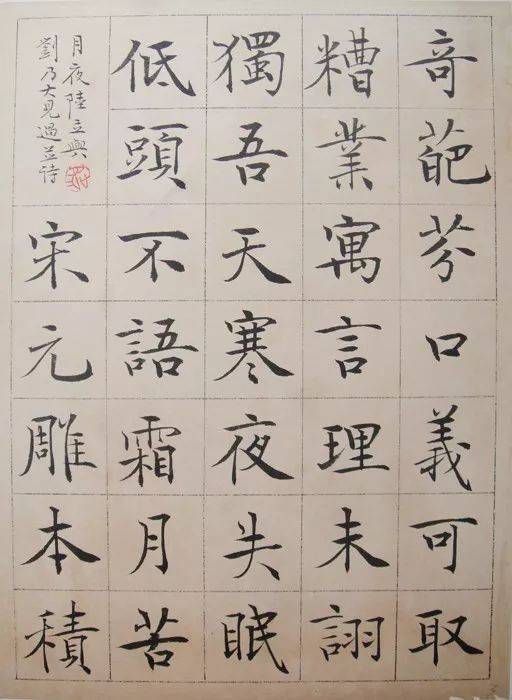 竒葩芬口義可取
糟業寓言理未詡
獨吾天寒夜失眠
低頭不語霜月苦
宋元雕本積
月夜陸立與
劉乃大見過並詩